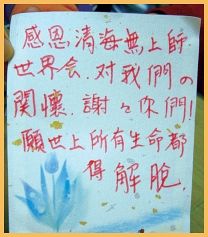 感恩清海無上師
世界会.对我們の
關懷.謝々你們!
願世上所有生命都
得解脫.